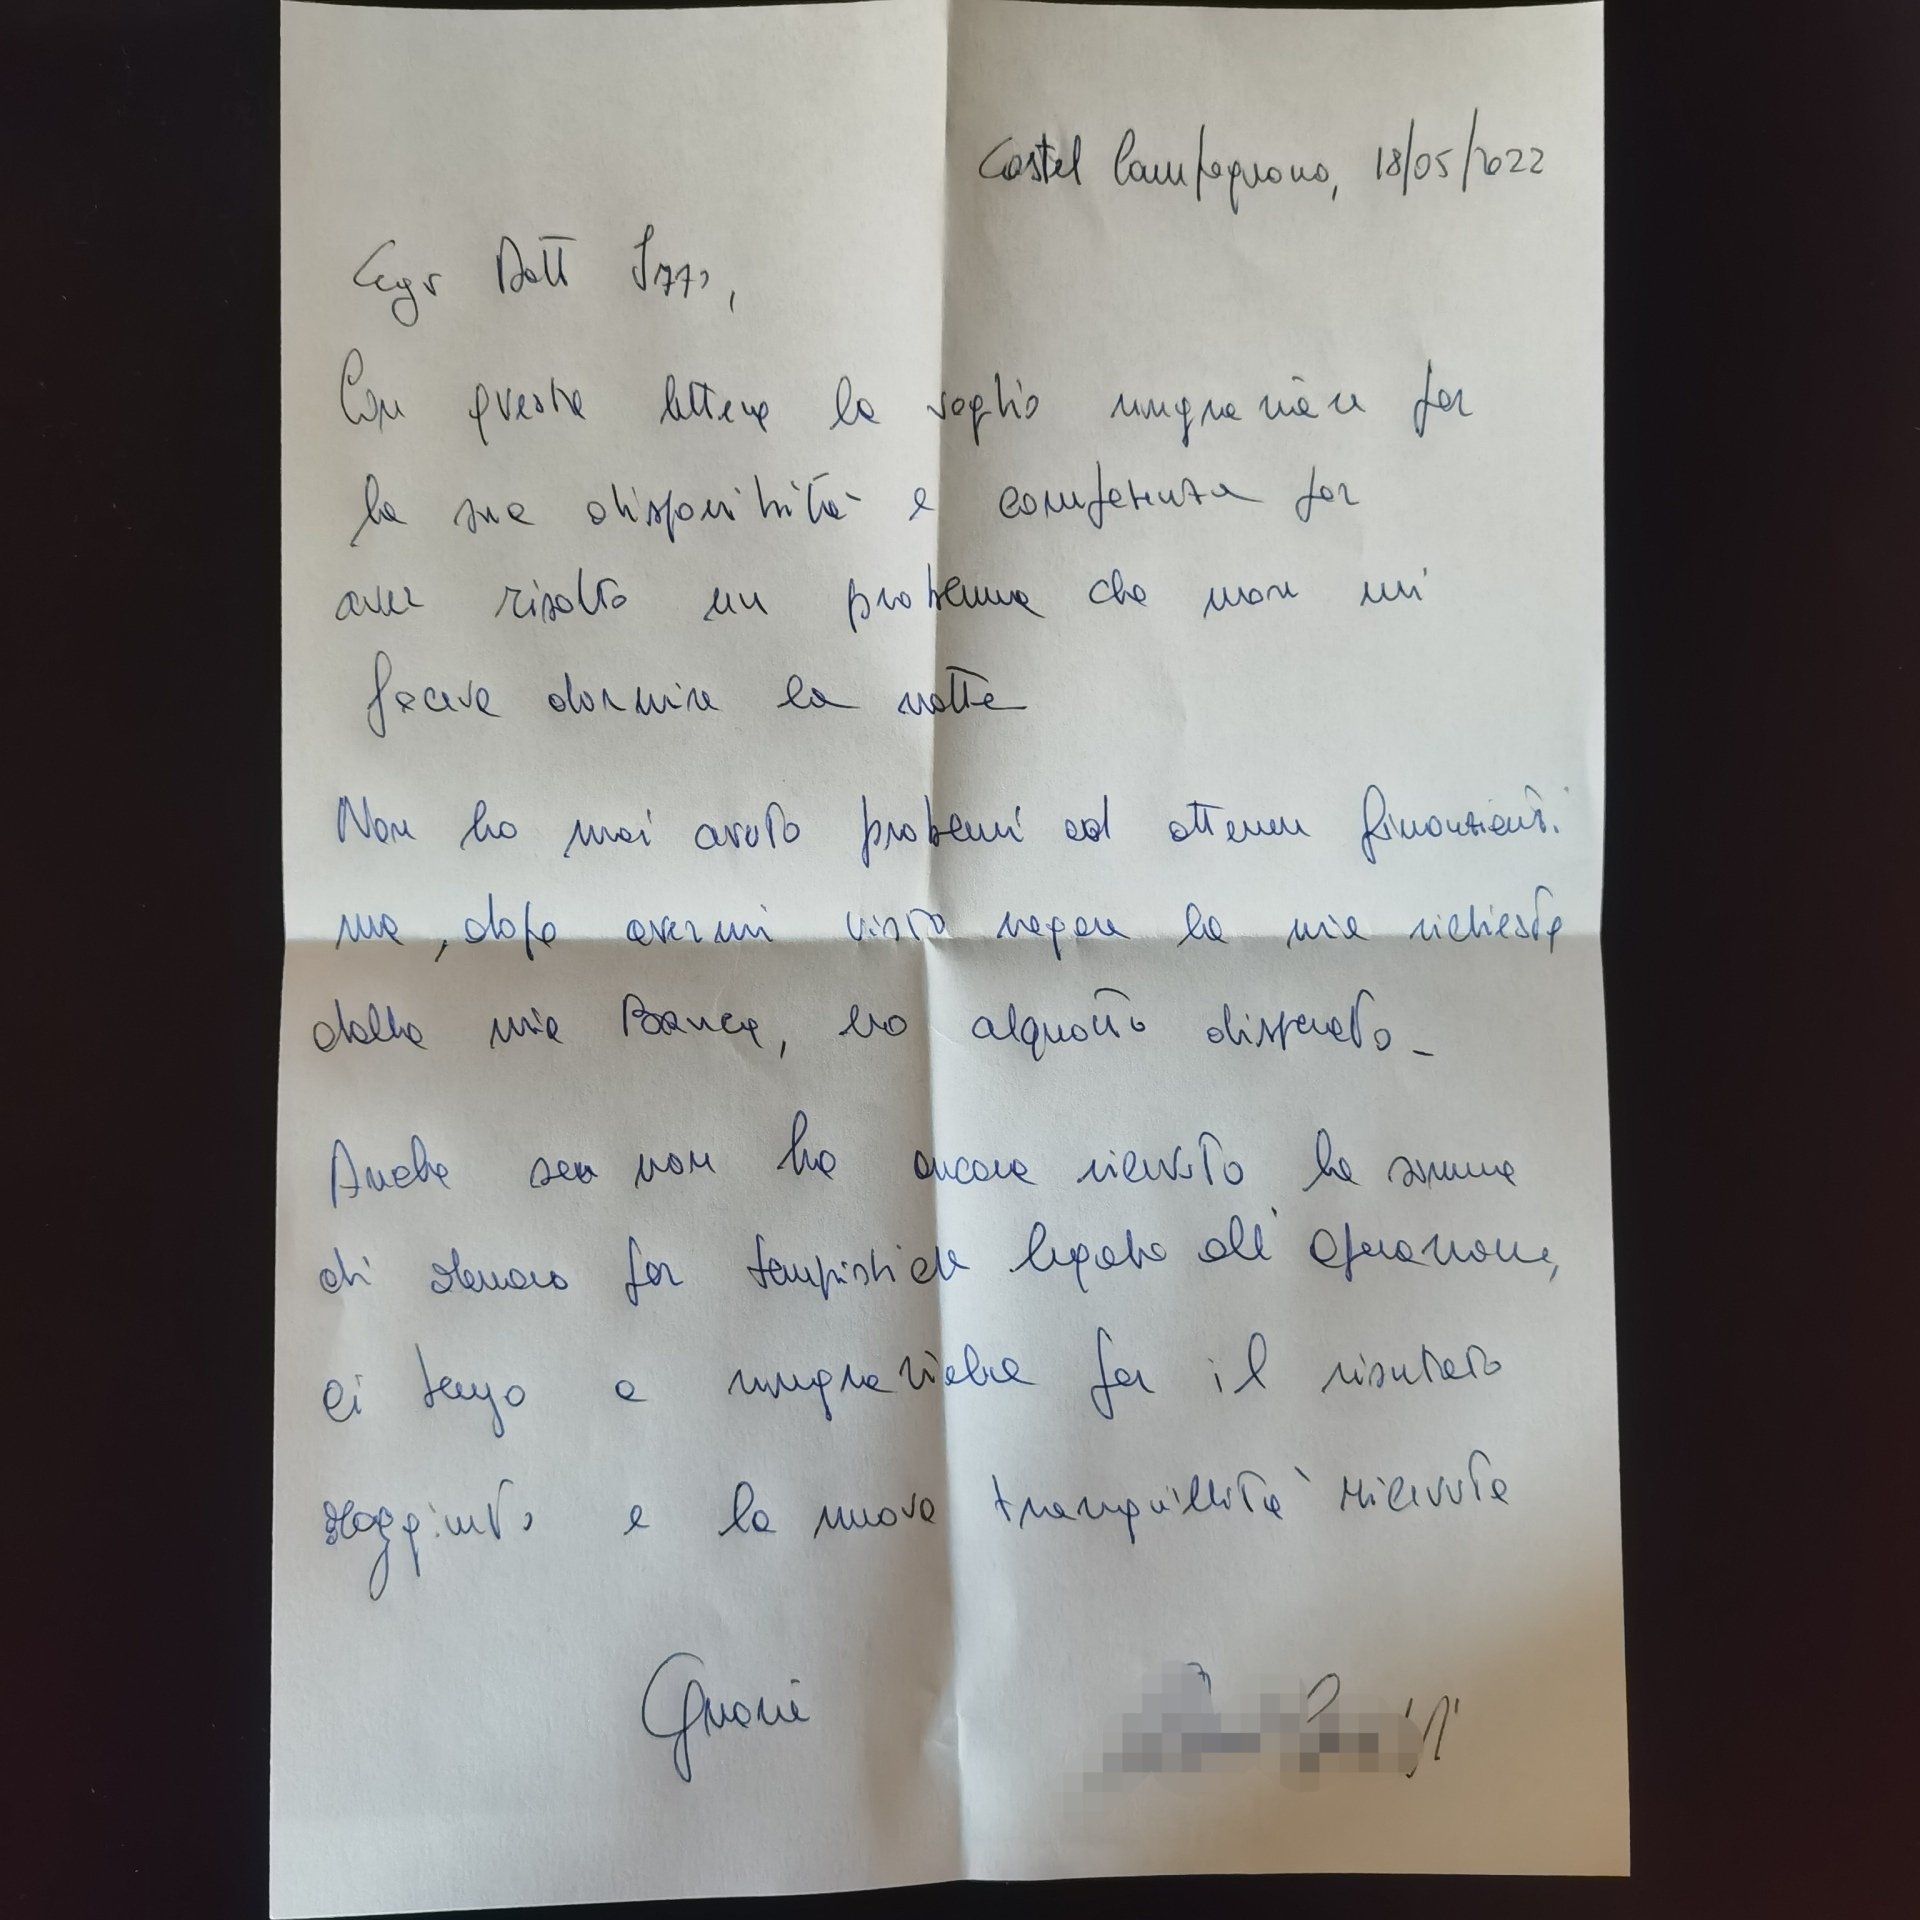 Castel Campagnano, 18/05/2022
Egr Dott Izzo,
Con questa lettera la voglio ringraziare per
la sua disponibilità e competenza per
aver risolto un problema che non mi
faceva dormire la notte
Non ho mai avuto problemi ad ottenere finanziamenti
ma, dopo avermi visto negare la mia richiesta
dalla mia Banca, ero alquanto disperato_
Anche se non ho ancora ricevuto la somma
di denaro per tempistiche legate all' Operazione,
ci tengo a ringraziarla per il risultato
raggiunto e la nuova tranquillità ricevuta
Grazie